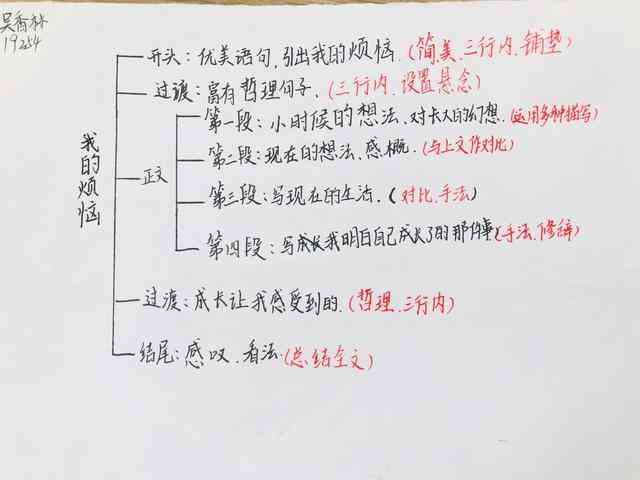 吴香林
19254
我的烦恼
开头:优美语句,引出我的烦恼.(简,美,三行内,铺垫)
过渡:富有哲理句子.(三行内,设置悬念)
正文
第一段:小时候的想法,对长大的幻想.(运用多种描写)
第二段:现在的想法,感概.(与上文作对比)
第三段:写现在的生活.(对比,手法)
第四段:写成长我明白自己成长了的那件事(手法,修辞)
过渡:成长让我感受到的.(哲理,三行内)
结尾:感叹,看法.(总结全文)